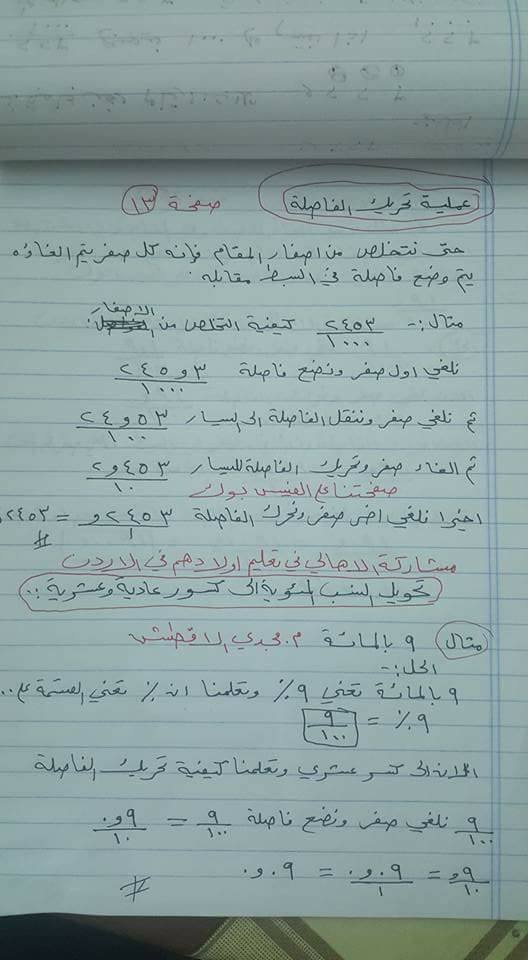 عملية تحريك الفاصلة صفحة ١٣
حتى نتخلص من اصفار المقام فإنه كل صفر يتم الغاؤه
يتم وضع فاصلة في البسط مقابله.
مثال:- ٢٤٥٣/١٠٠٠ كيفية التخلص من الاصفار:
نلغي اول صفر ونضع فاصلة ٢٤٥و٣/١٠٠٠
ثم نلغي صفر وننقل الفاصلة الى اليسار ٢٤و٥٣/١٠٠
ثم الغاء صفر وتحريك الفاصلة لليسار ٢و٤٥٣/١٠
صفحتنا ع الفيس بوك
اخيرا نلغي اخر صفر ونحرك الفاصلة و٢٤٥٣/١ = ٢٤٥٣و
#
مشاركة الاهالي في تعليم اولادهم في الاردن
تحويل النسب المئوية الى كسور عادية وعشرية :.
مثال ٩ بالمائة م. مجدي الاقطش
الحل:-
٩ بالمائة تعني ٩٪ وتعلمنا ان ٪ تعني القسمة على ..
٩٪ = ٩/١٠٠
الان الى كسر عشري وتعلمنا كيفية تحريك الفاصلة
٩/١٠٠ نلغي صفر ونضع فاصلة ٩/١٠٠ = ٠و٩/١٠
و٩/١٠ = ٠و٠٩/١ = ٠و٠٩
#